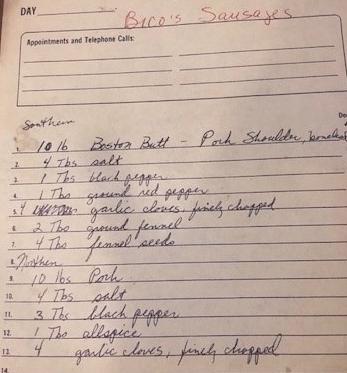 DAY
Bico's Sausages
Appointments and Telephone Calls:
Southern
1. 10 lb Boston Butt - Pork Shoulder, boneless
2. 4 Tbs salt
3. 1 Tbs black pepper
4. 1 Tbs ground red pepper
5. 4 garlic cloves, finely chopped
6. 2 Tbs ground fennel
7. 4 Tbs fennel seeds
8. Northern
9. 10 lbs Pork
10. 4 Tbs salt
11. 3 Tbs black pepper
12. 1 Tbs allspice
13. 4 garlic cloves, finely chopped
14.